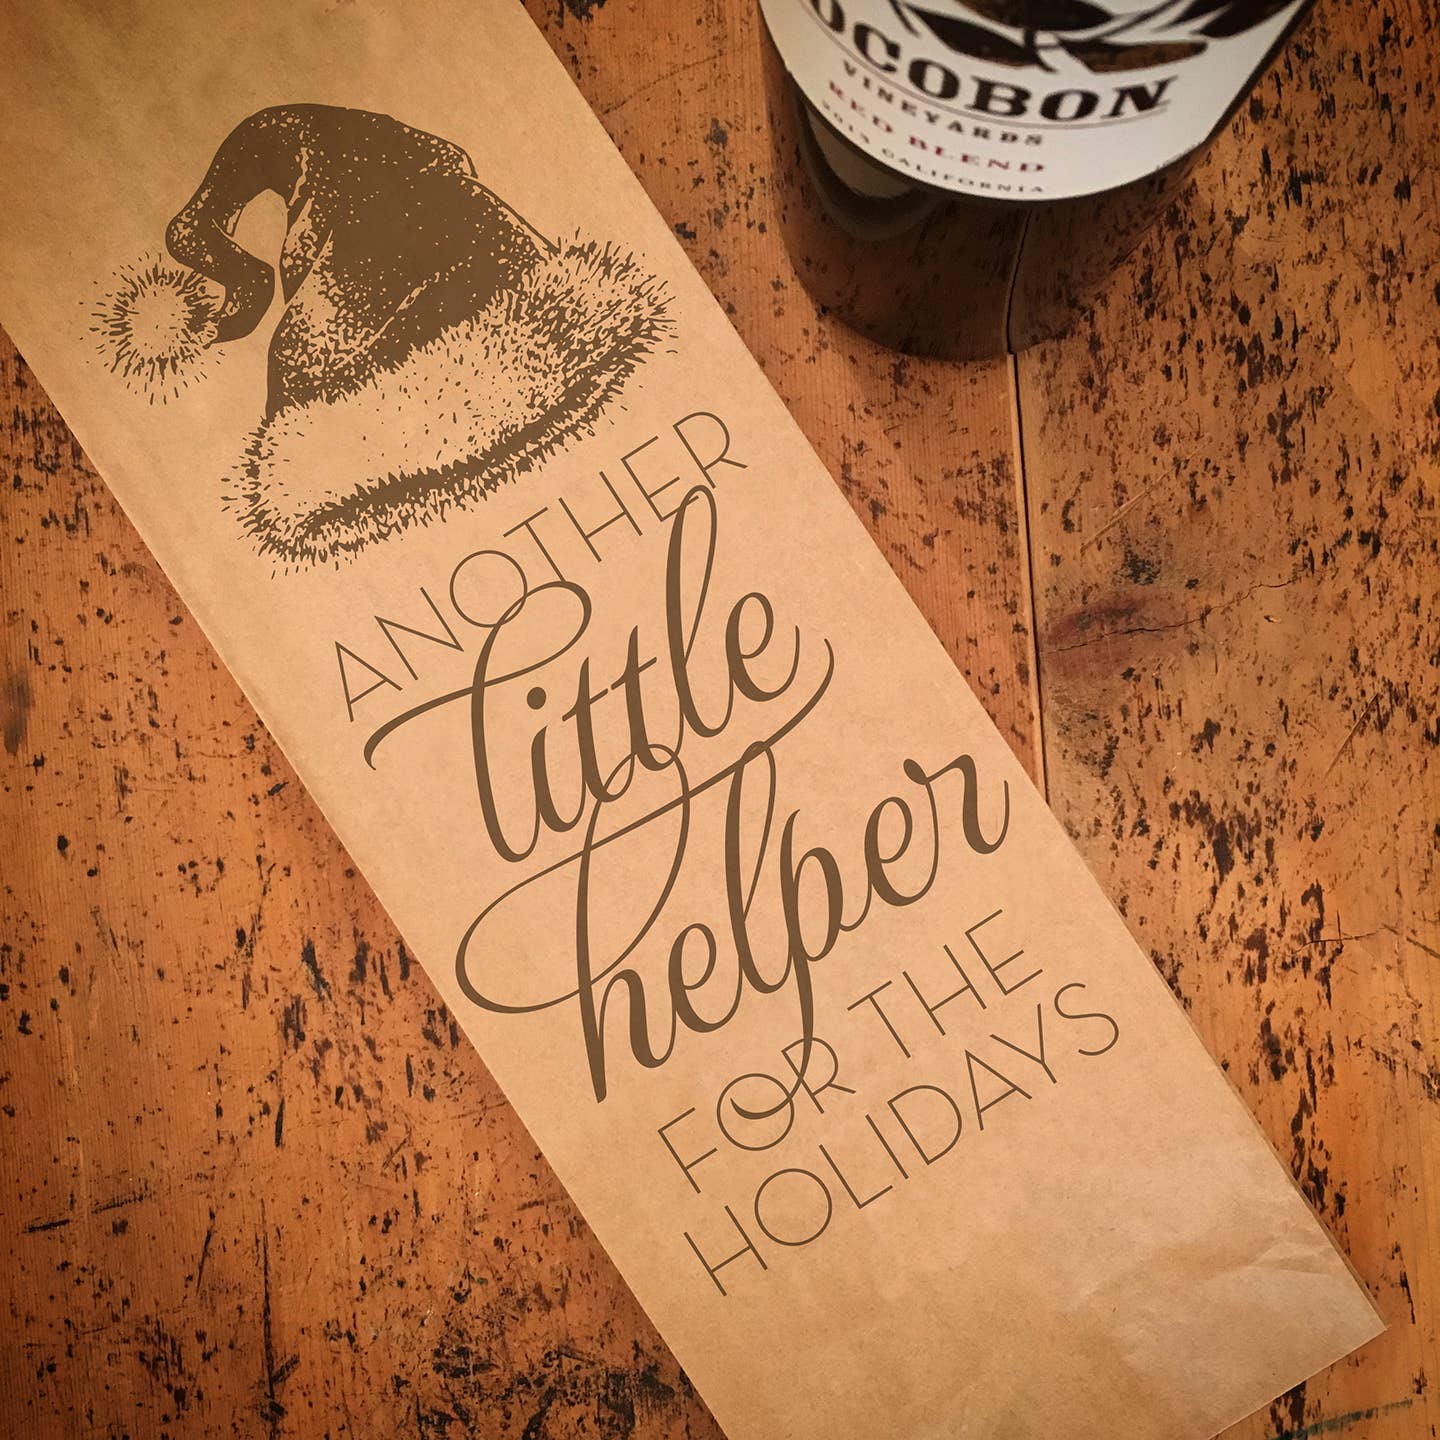 OCOBON
VINEYARDS
RED BLEND
2013 CALIFORNIA
ANOTHER
little
helper
FOR THE
HOLIDAYS